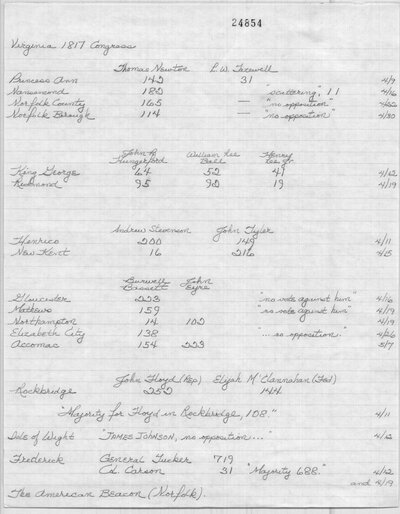 24854
Virginia 1817 Congress
Thomas Newton L.W. Tazewell
Princess Ann 142 31 4/9
Nansemond 182 "scattering," 11 4/16
Norfolk County 165 — "no opposition"
Norfolk Borough 114 — "no opposition" 4/30
John P. Hungerford William Lee Ball Henry Lee Jr.
King George 64 52 41 4/12
Richmond 95 92 19 4/19
Andrew Stevenson John Tyler
Henrico 200 149 4/11
New Kent 16 216 4/15
Burwell Bassett John Eyre
Gloucester 223 "no vote against him" 4/16
Mathews 159 "no vote against him" 4/19
Northampton 14 102 4/19
Elizabeth City 138 "... no opposition." 4/26
Accomac 154 223 5/7
John Floyd (Rep) Elijah McClannahan (Fed)
Rockbridge 252 144
"Majority for Floyd in Rockbridge, 108." 4/11
Isle of Wight "JAMES JOHNSON, no opposition..." 4/12
Frederick General Tucker 719
Col. Carson 31 "Majority 688." 4/12
and 4/19
The American Beacon (Norfolk).